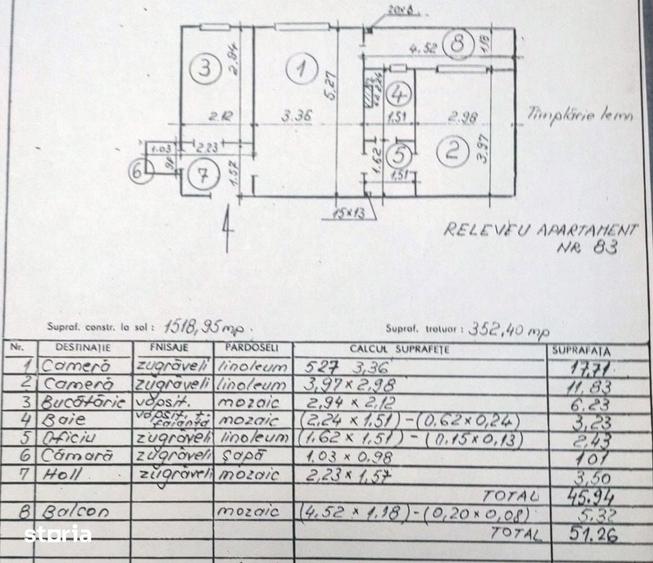 20x8
4.52
1.18
8
2.94
3
1
5,27
4
2.12
3.36
1.51
2.98
Tîmplărie lemn
1.03
2.23
5
2
3,97
1,62
6
7
1.57
1,51
4
15x13
RELEVEU APARTAMENT
NR 83
Supraf. constr. la sol : 1518,95 mp.
Supraf. trotuar : 352,40 mp
Nr. DESTINAȚIE FNISAJE PARDOSELI CALCUL SUPRAFEȚE SUPRAFAȚA
1 Cameră zugrăveli linoleum 527 3,36 17,71
2 Cameră zugrăveli linoleum 3,97 x 2,98 11,83
3 Bucătărie vopsit. mozaic 2,94 x 2,12 6.23
4 Baie vopsit. f. faianță mozaic (2,24 x 1,51) - (0.62 x 0,24) 3,23
5 Oficiu zugrăveli linoleum (1.62 x 1,51) - (0,15 x 0,13) 2,43
6 Cămară zugrăveli șapă 1.03 x 0,98 101
7 Holl zugrăveli mozaic 2,23 x 1,57 3,50
TOTAL 45.94
8 Balcon mozaic (4.52 x 1.18) - (0,20 x 0,08) 5.32
TOTAL 51.26
storia